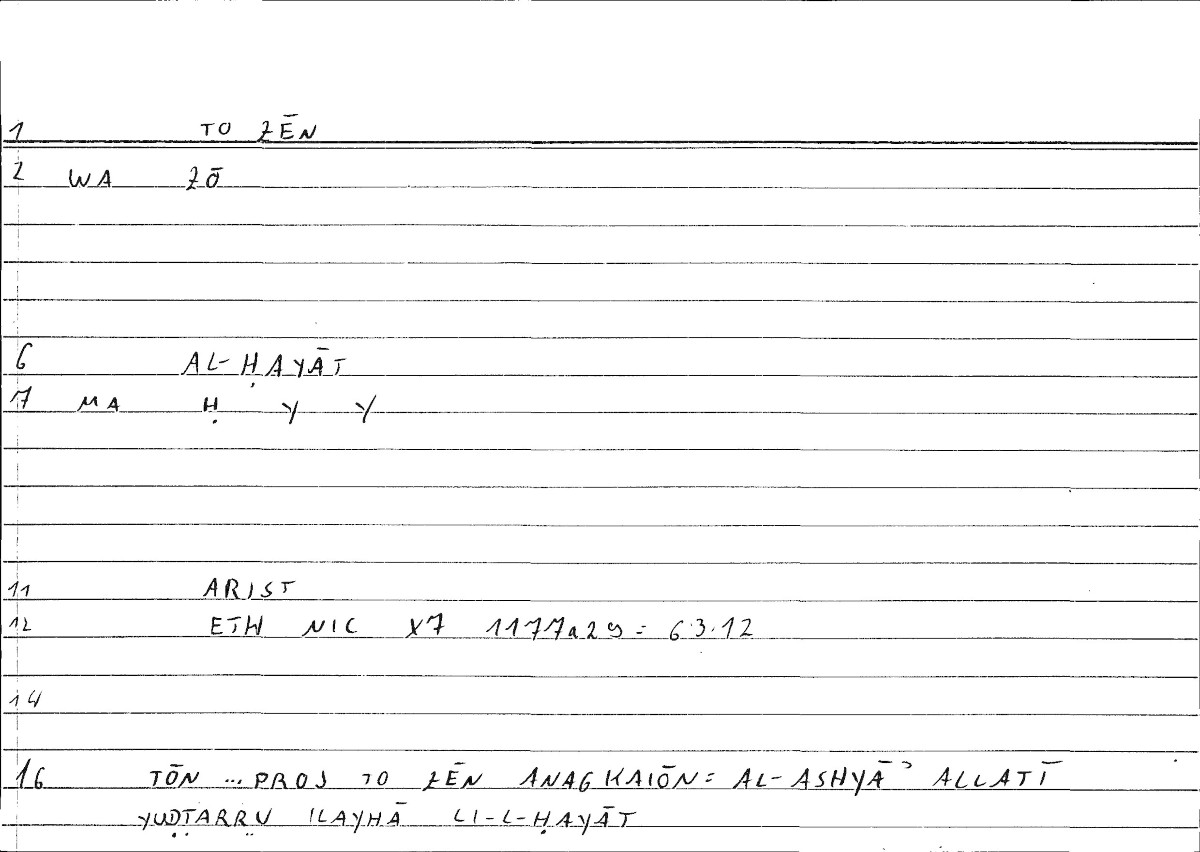 1 TO ZĒN
2 WA ZŌ
6 AL-ḤAYĀT
7 MA Ḥ Y Y
11 ARIST
12 ETH NIC X7 1177a29 = 63.12
14
16 TŌN ... PROS TO ZĒN ANAGKAIŌN = AL-ASHYĀʾ ALLATĪ
YUḌṬARRU ILAYHĀ LI-L-ḤAYĀT